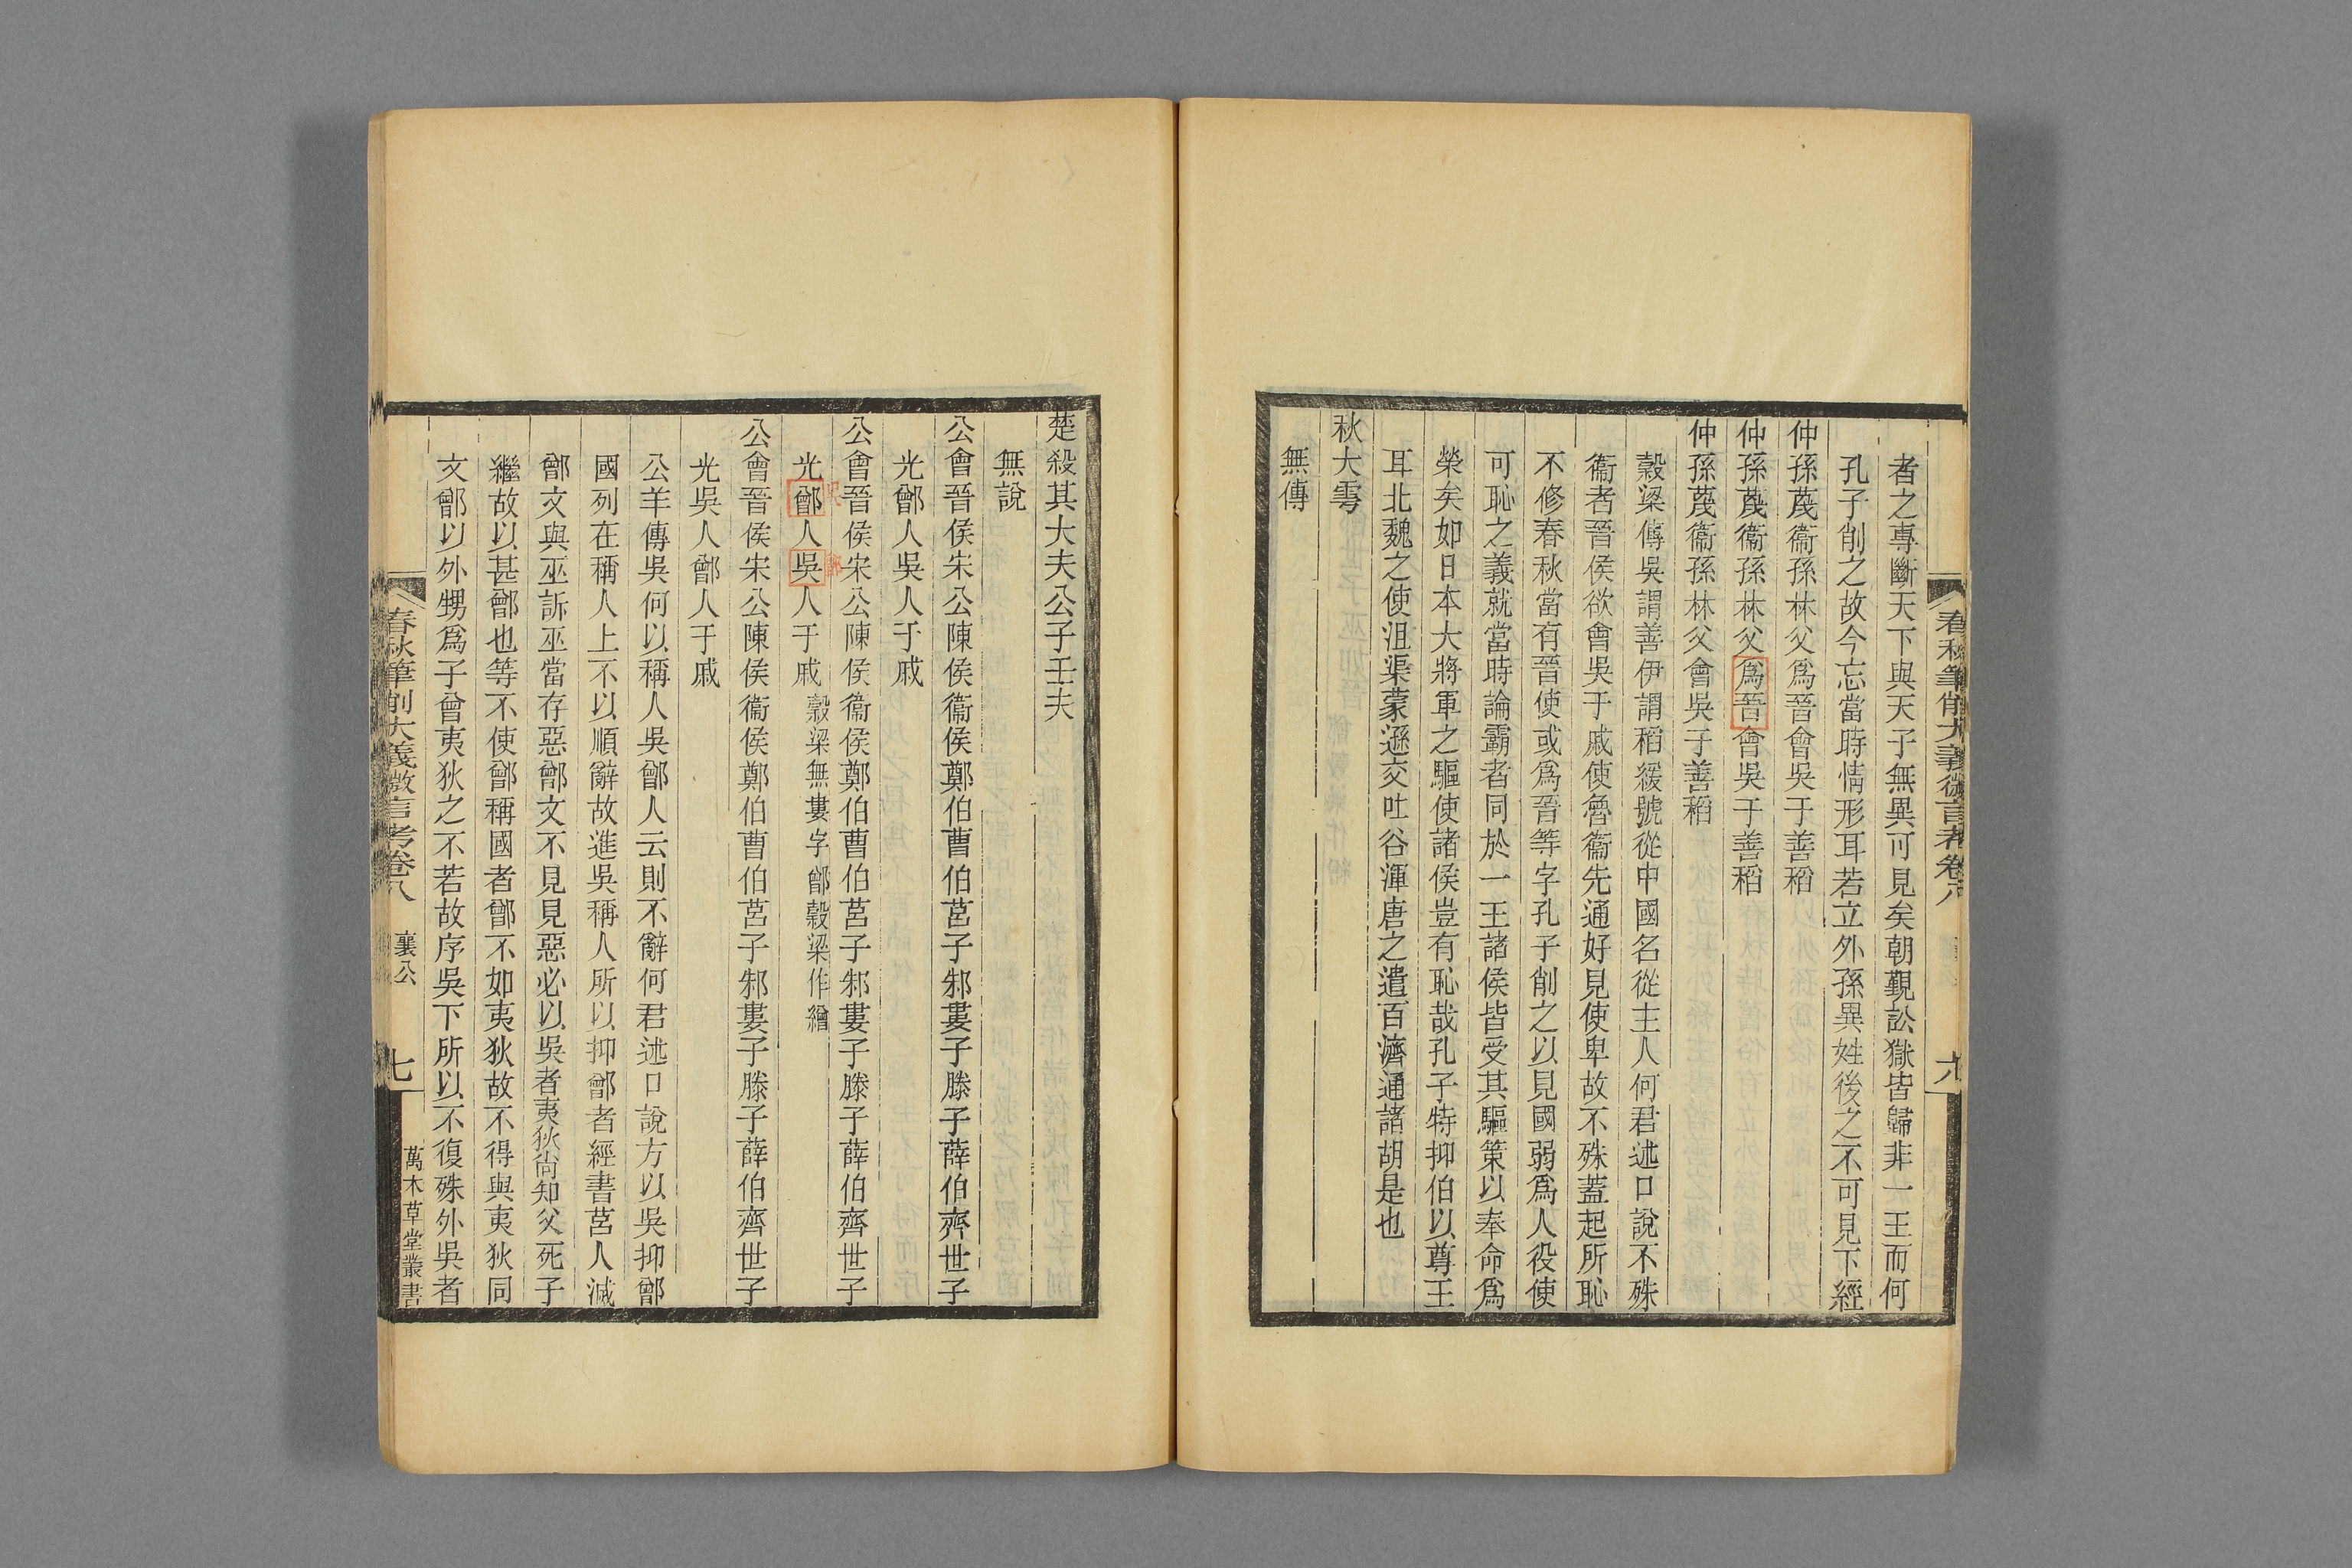 春秋筆削大義微言考卷八
者之專斷天下與天子無異可見矣朝覲訟獄皆歸非一王而何
孔子削之故今忘當時情形耳若立外孫異姓後之不可見下經
仲孫蔑衞孫林父爲晉會吳于善稻
仲孫蔑衞孫林父爲晉會吳于善稻
仲孫蔑衞孫林父會吳于善稻
穀梁傳吳謂善伊謂稻緩號從中國名從主人何君述口說不殊
衞者晉侯欲會吳于戚使魯衞先通好見使卑故不殊蓋起所恥
不修春秋當有晉使或爲晉等字孔子削之以見國弱爲人役使
可恥之義就當時論霸者同於一王諸侯皆受其驅策以奉命爲
榮矣如日本大將軍之驅使諸侯豈有恥哉孔子特抑伯以尊王
耳北魏之使沮渠蒙遜交吐谷渾唐之遣百濟通諸胡是也
秋大雩
無傳
楚殺其大夫公子壬夫
無說
公會晉侯宋公陳侯衞侯鄭伯曹伯莒子邾婁子滕子薛伯齊世子
光鄫人吳人于戚
公會晉侯宋公陳侯衞侯鄭伯曹伯莒子邾婁子滕子薛伯齊世子
吳 鄫
光鄫人吳人于戚 穀梁無婁字鄫穀梁作繒
公會晉侯宋公陳侯衞侯鄭伯曹伯莒子邾婁子滕子薛伯齊世子
光吳人鄫人于戚
公羊傳吳何以稱人吳鄫人云則不辭何君述口說方以吳抑鄫
國列在稱人上不以順辭故進吳稱人所以抑鄫者經書莒人滅
鄫文與巫訴巫當存惡鄫文不見見惡必以吳者夷狄尚知父死子
繼故以甚鄫也等不使鄫稱國者鄫不如夷狄故不得與夷狄同
文鄫以外甥爲子曾夷狄之不若故序吳下所以不復殊外吳者
春秋筆削大義微言考卷八 襄公 七 萬木草堂叢書